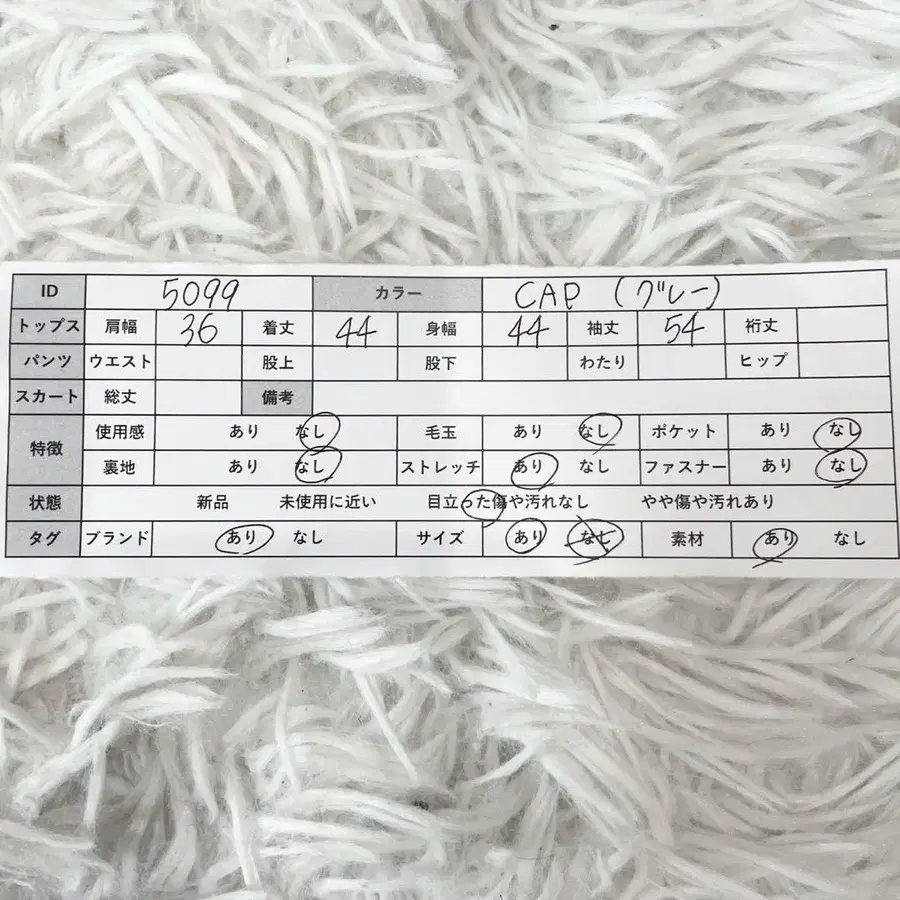 ID 5099 カラー CAP (グレー)
トップス 肩幅 36 着丈 44 身幅 44 袖丈 54 裄丈
パンツ ウエスト 股上 股下 わたり ヒップ
スカート 総丈 備考
特徴 使用感 あり なし 毛玉 あり なし ポケット あり なし
裏地 あり なし ストレッチ あり なし ファスナー あり なし
状態 新品 未使用に近い 目立った傷や汚れなし やや傷や汚れあり
タグ ブランド あり なし サイズ あり なし 素材 あり なし